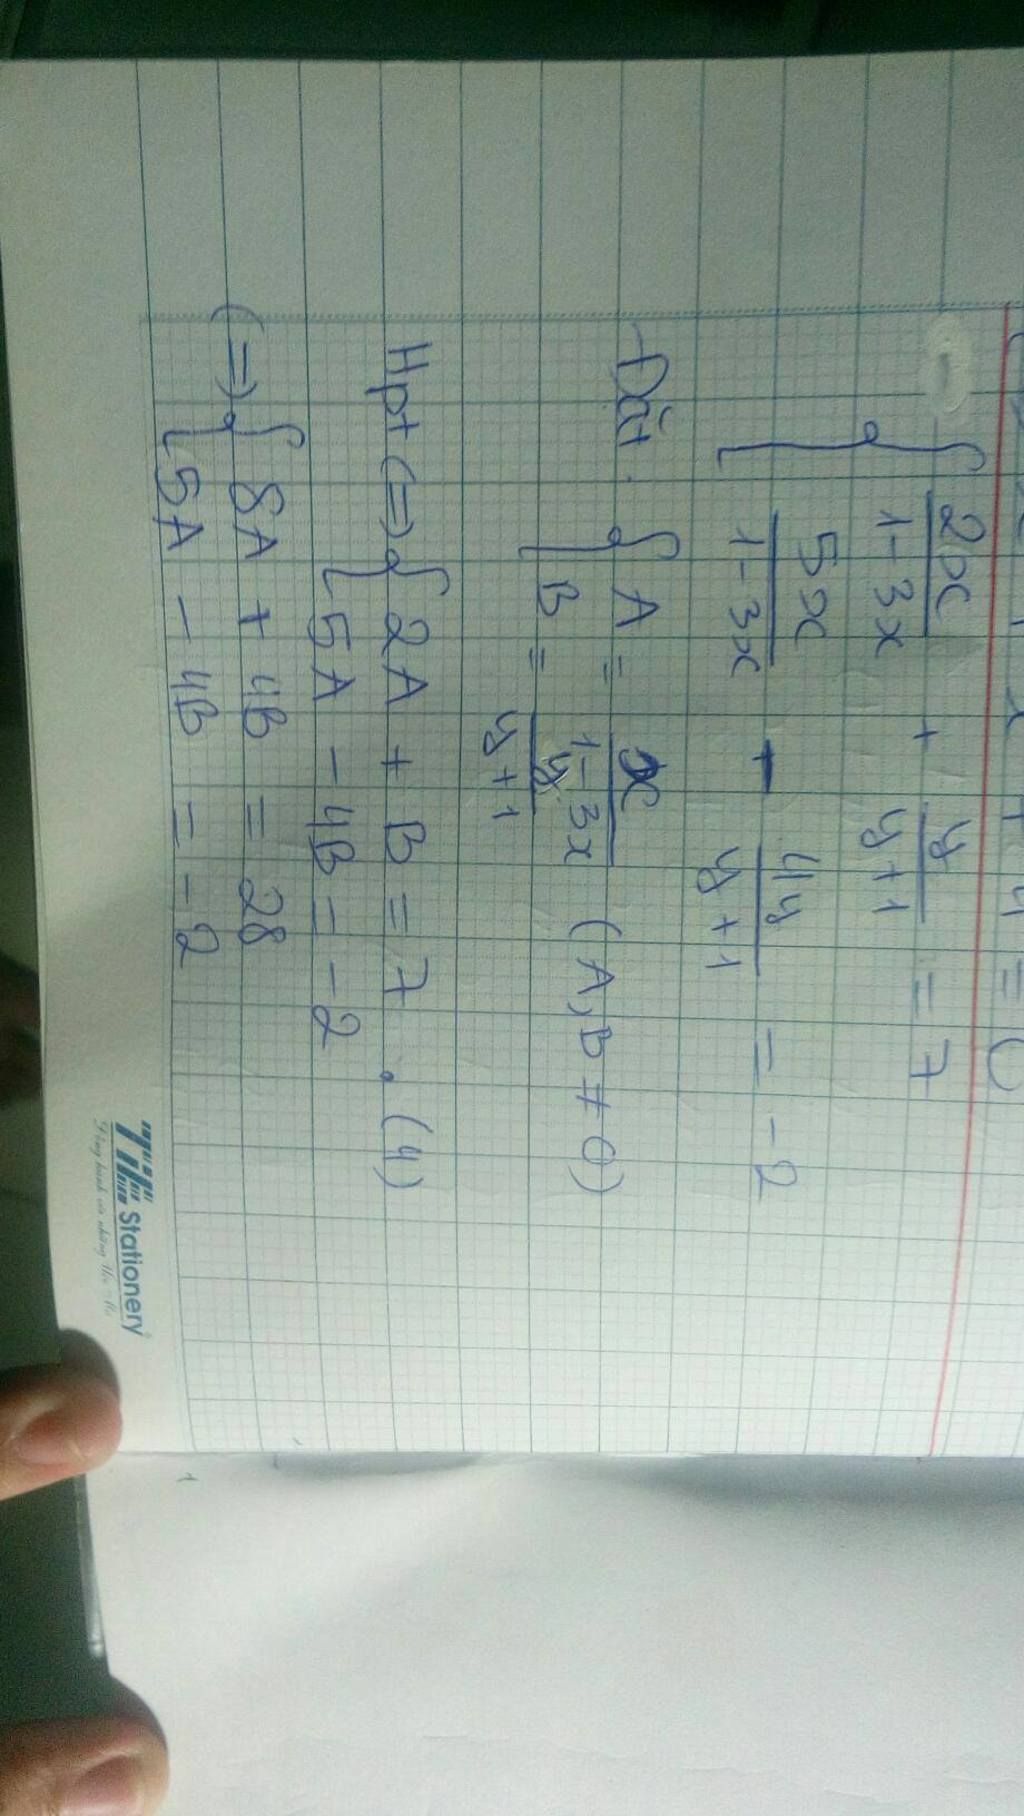 2x/(1-3x) + y/(y+1) = 7
5x/(1-3x) - 4y/(y+1) = -2
Đặt. A = x/(1-3x) (A, B ≠ 0)
B = y/(y+1)
Hpt <=> 2A + B = 7. (4)
5A - 4B = -2
<=> 8A + 4B = 28
5A - 4B = -2
Stationery